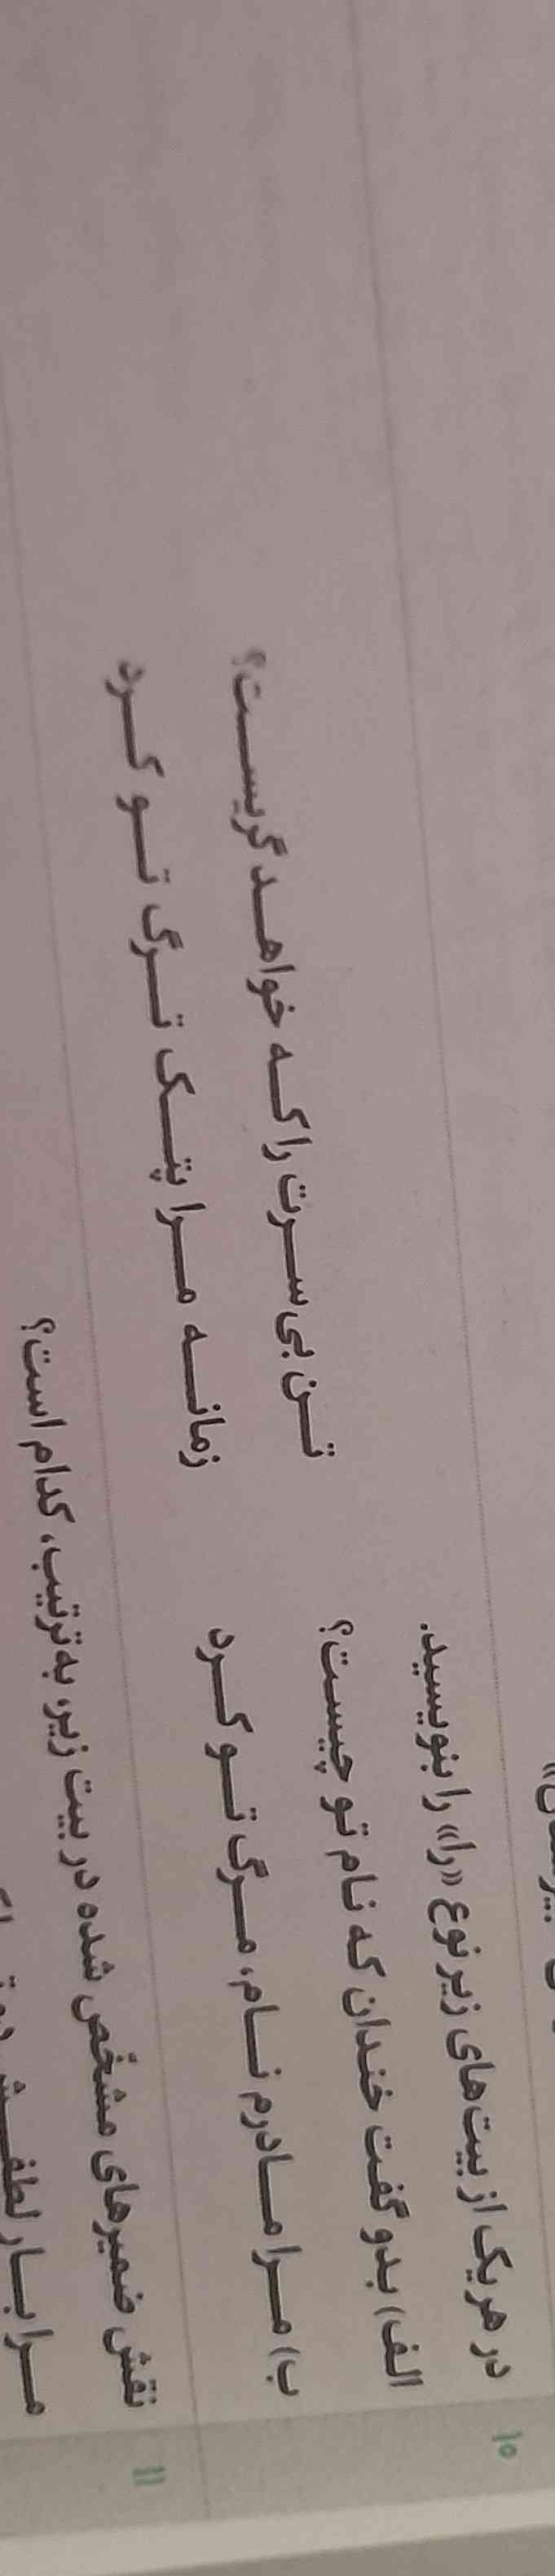 ۱۰ در هر یک از بیت‌های زیر نوع «را» را بنویسید.
الف) بدو گفت خندان که نام تو چیست؟ تن بی‌سرت را که خواهد گریست؟
ب) مرا مادرم نام، مرگ تو کرد زمانه مرا پتک ترگ تو کرد
۱۱ نقش ضمیرهای مشخّص شده در بیت زیر، به ترتیب، کدام است؟
مرا بار لطفش